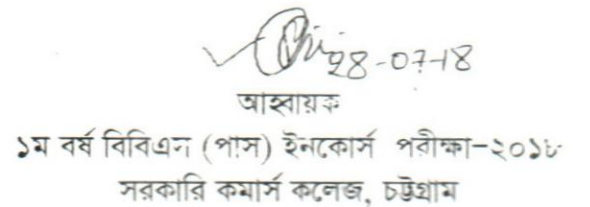 28-07-18
আহবায়ক
১ম বর্ষ বিবিএস (পাস) ইনকোর্স পরীক্ষা-২০১৮
সরকারি কমার্স কলেজ, চট্টগ্রাম